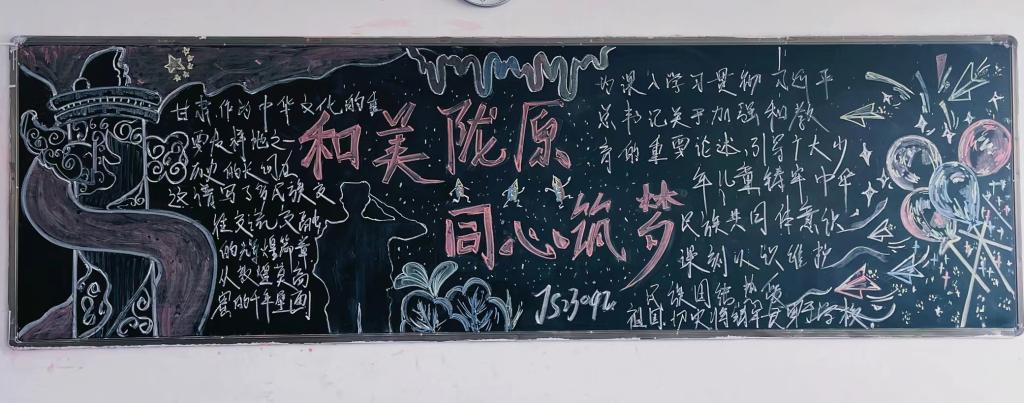 甘肃作为中华文化的重
要发祥地之一
历史的长河在
这谱写了多民族交
往交流交融
的辉煌篇章
从敦煌莫高
窟的千年壁画
和美陇原
同心筑梦
JS:3042
为深入学习贯彻习近平
总书记关于加强和教
育的重要论述,引导广大少
年儿童铸牢中华
民族共同体意识
深刻认识维护
民族团结
祖国